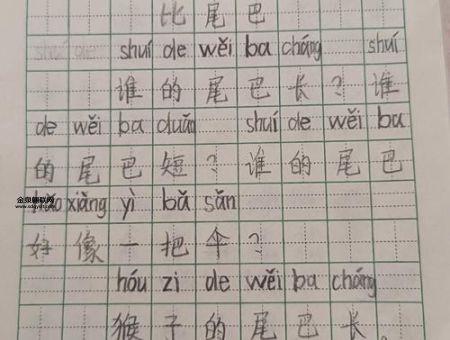 比尾巴
shuí de wěi ba cháng shuí
谁的尾巴长？谁
de wěi ba duǎn shuí de wěi ba
的尾巴短？谁的尾巴
hǎo xiàng yì bǎ sǎn
好像一把伞？
hóu zi de wěi ba cháng
猴子的尾巴长。